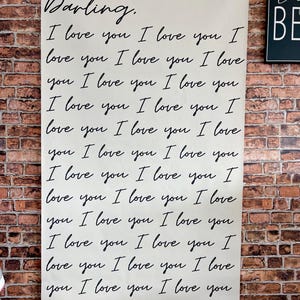 Darling,
I love you I love you I
love you I love you I love
you I love you I love you
I love you I love you I
love you I love you I love
you I love you I love you
I love you I love you I
love you I love you I love
you I love you I love you
I love you I love you I
love you I love you I love
you I love you I love you
BE